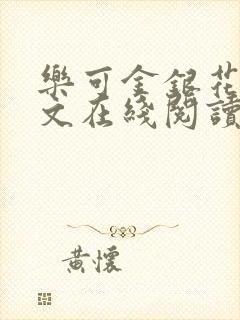 樂可金銀花
文在綫閱讀
黃懷